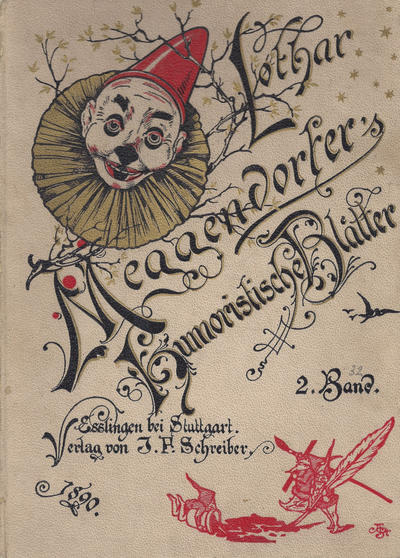 Lothar
Meggendorfer's
Humoristische Blätter
32
2. Band.
Esslingen bei Stuttgart.
Verlag von J. F. Schreiber.
1890.